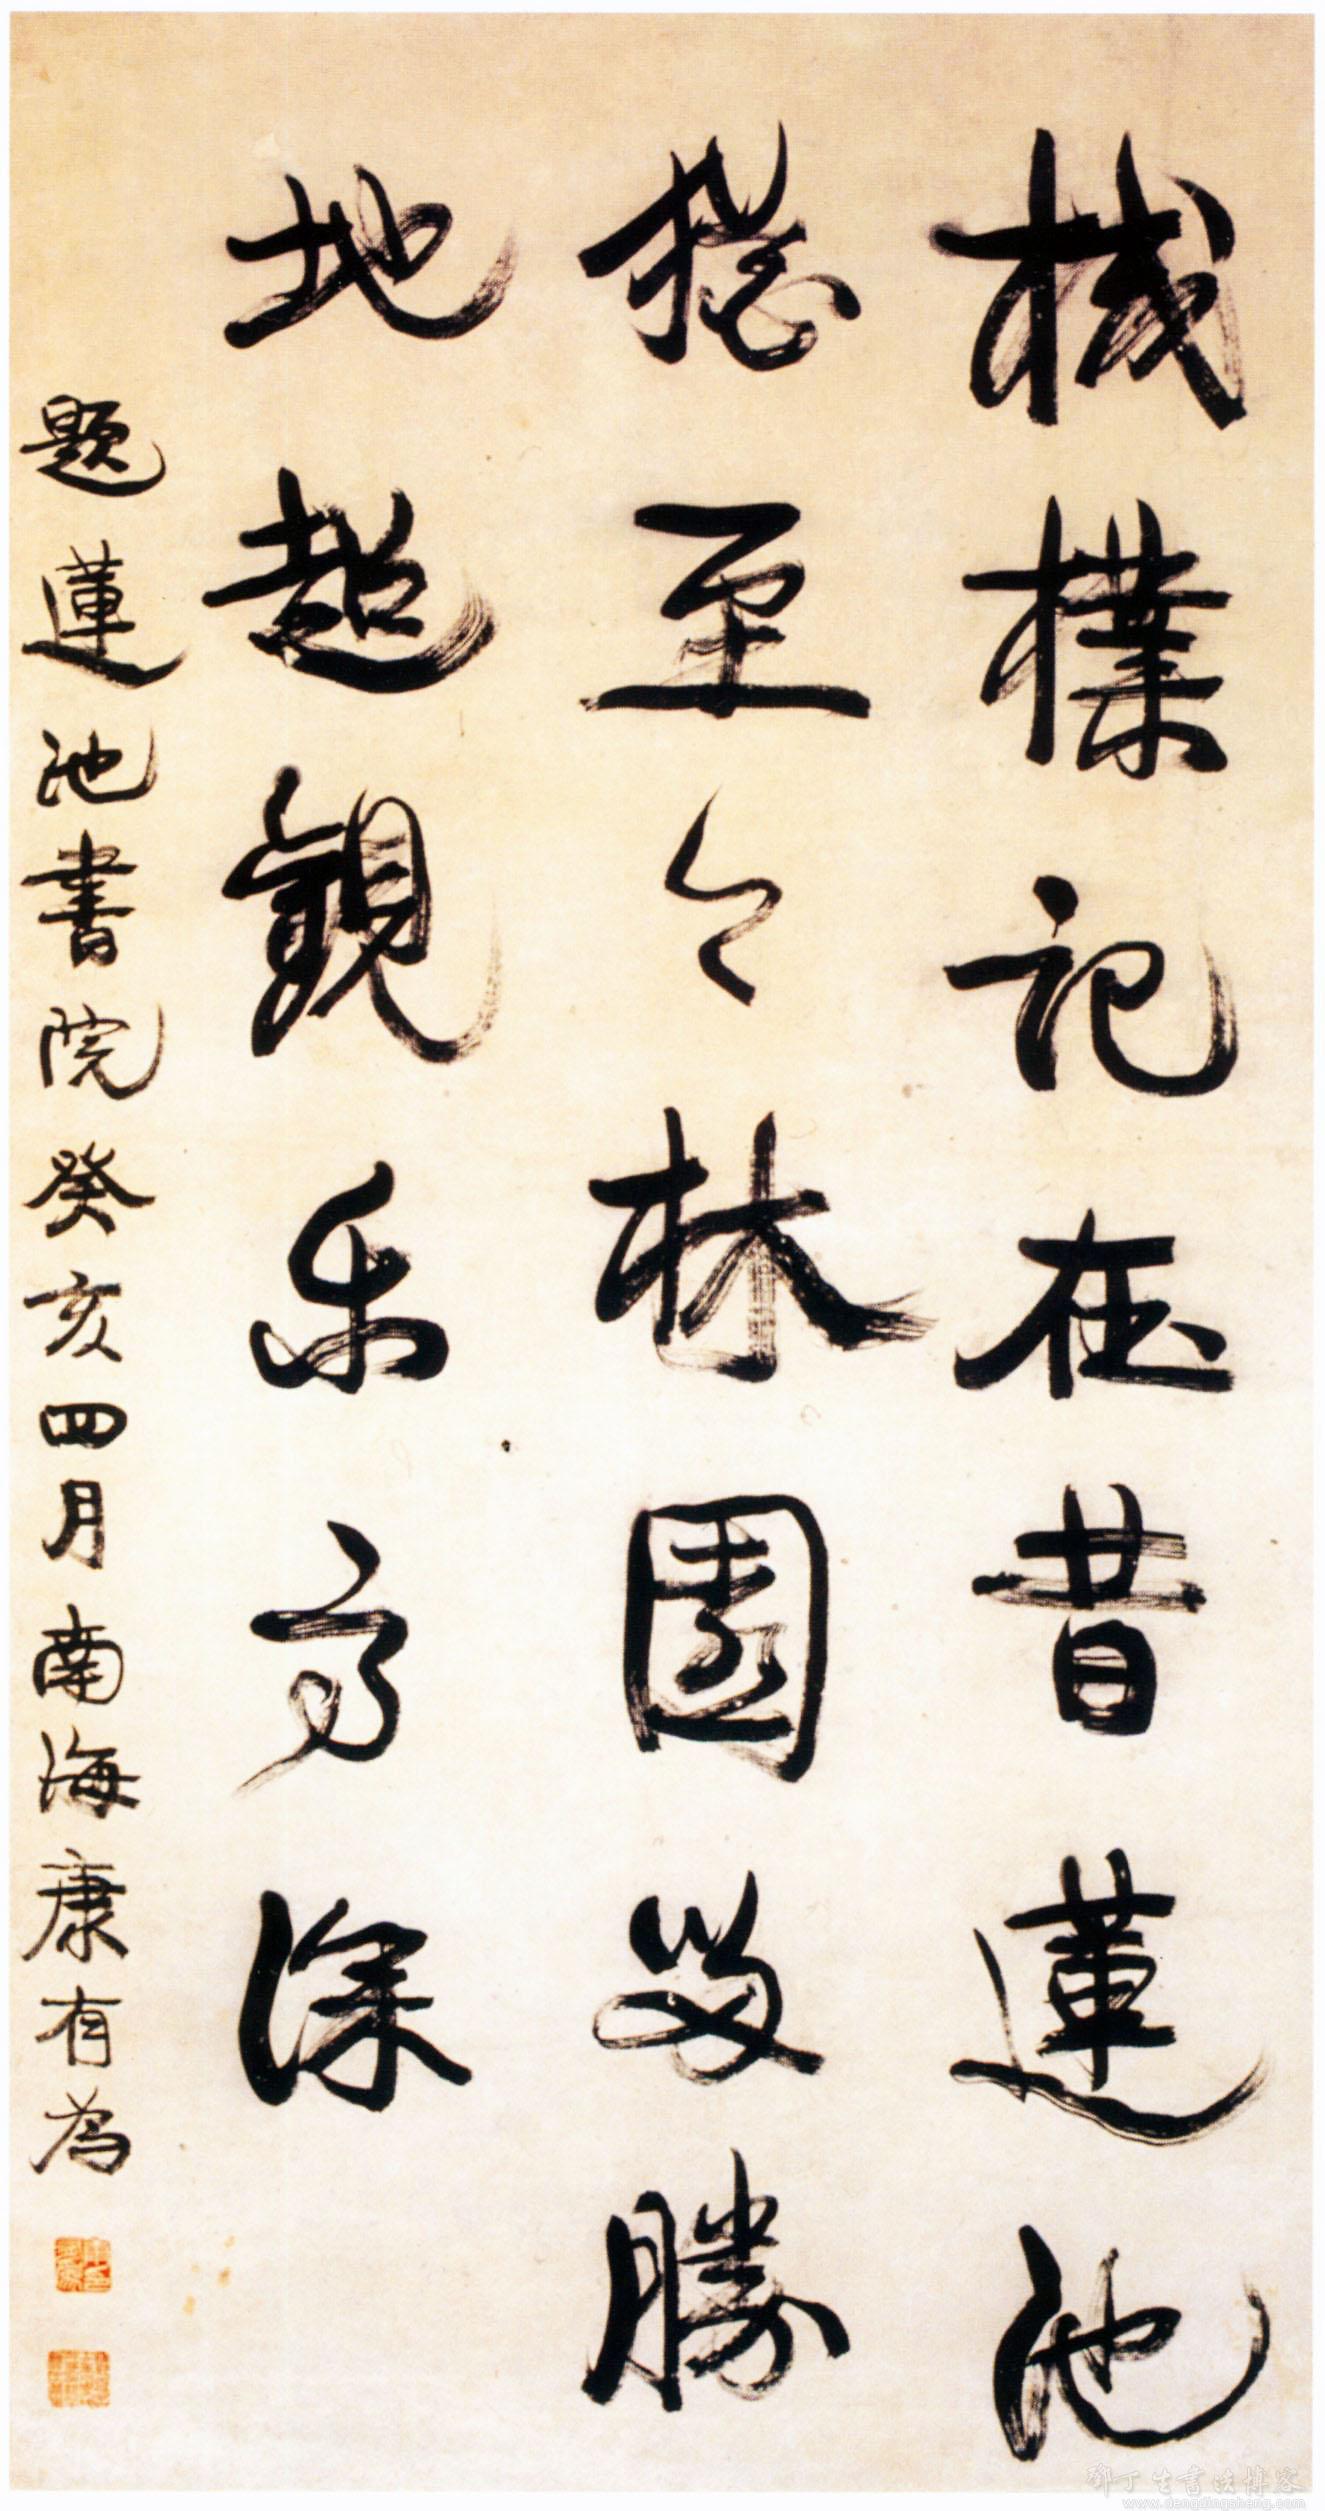 棫樸記在昔蓮池
猶至今林園留勝
地超觀乐高深
題蓮池書院癸亥四月南海康有為
鄧丁生書法博客
www.dengdingsheng.com